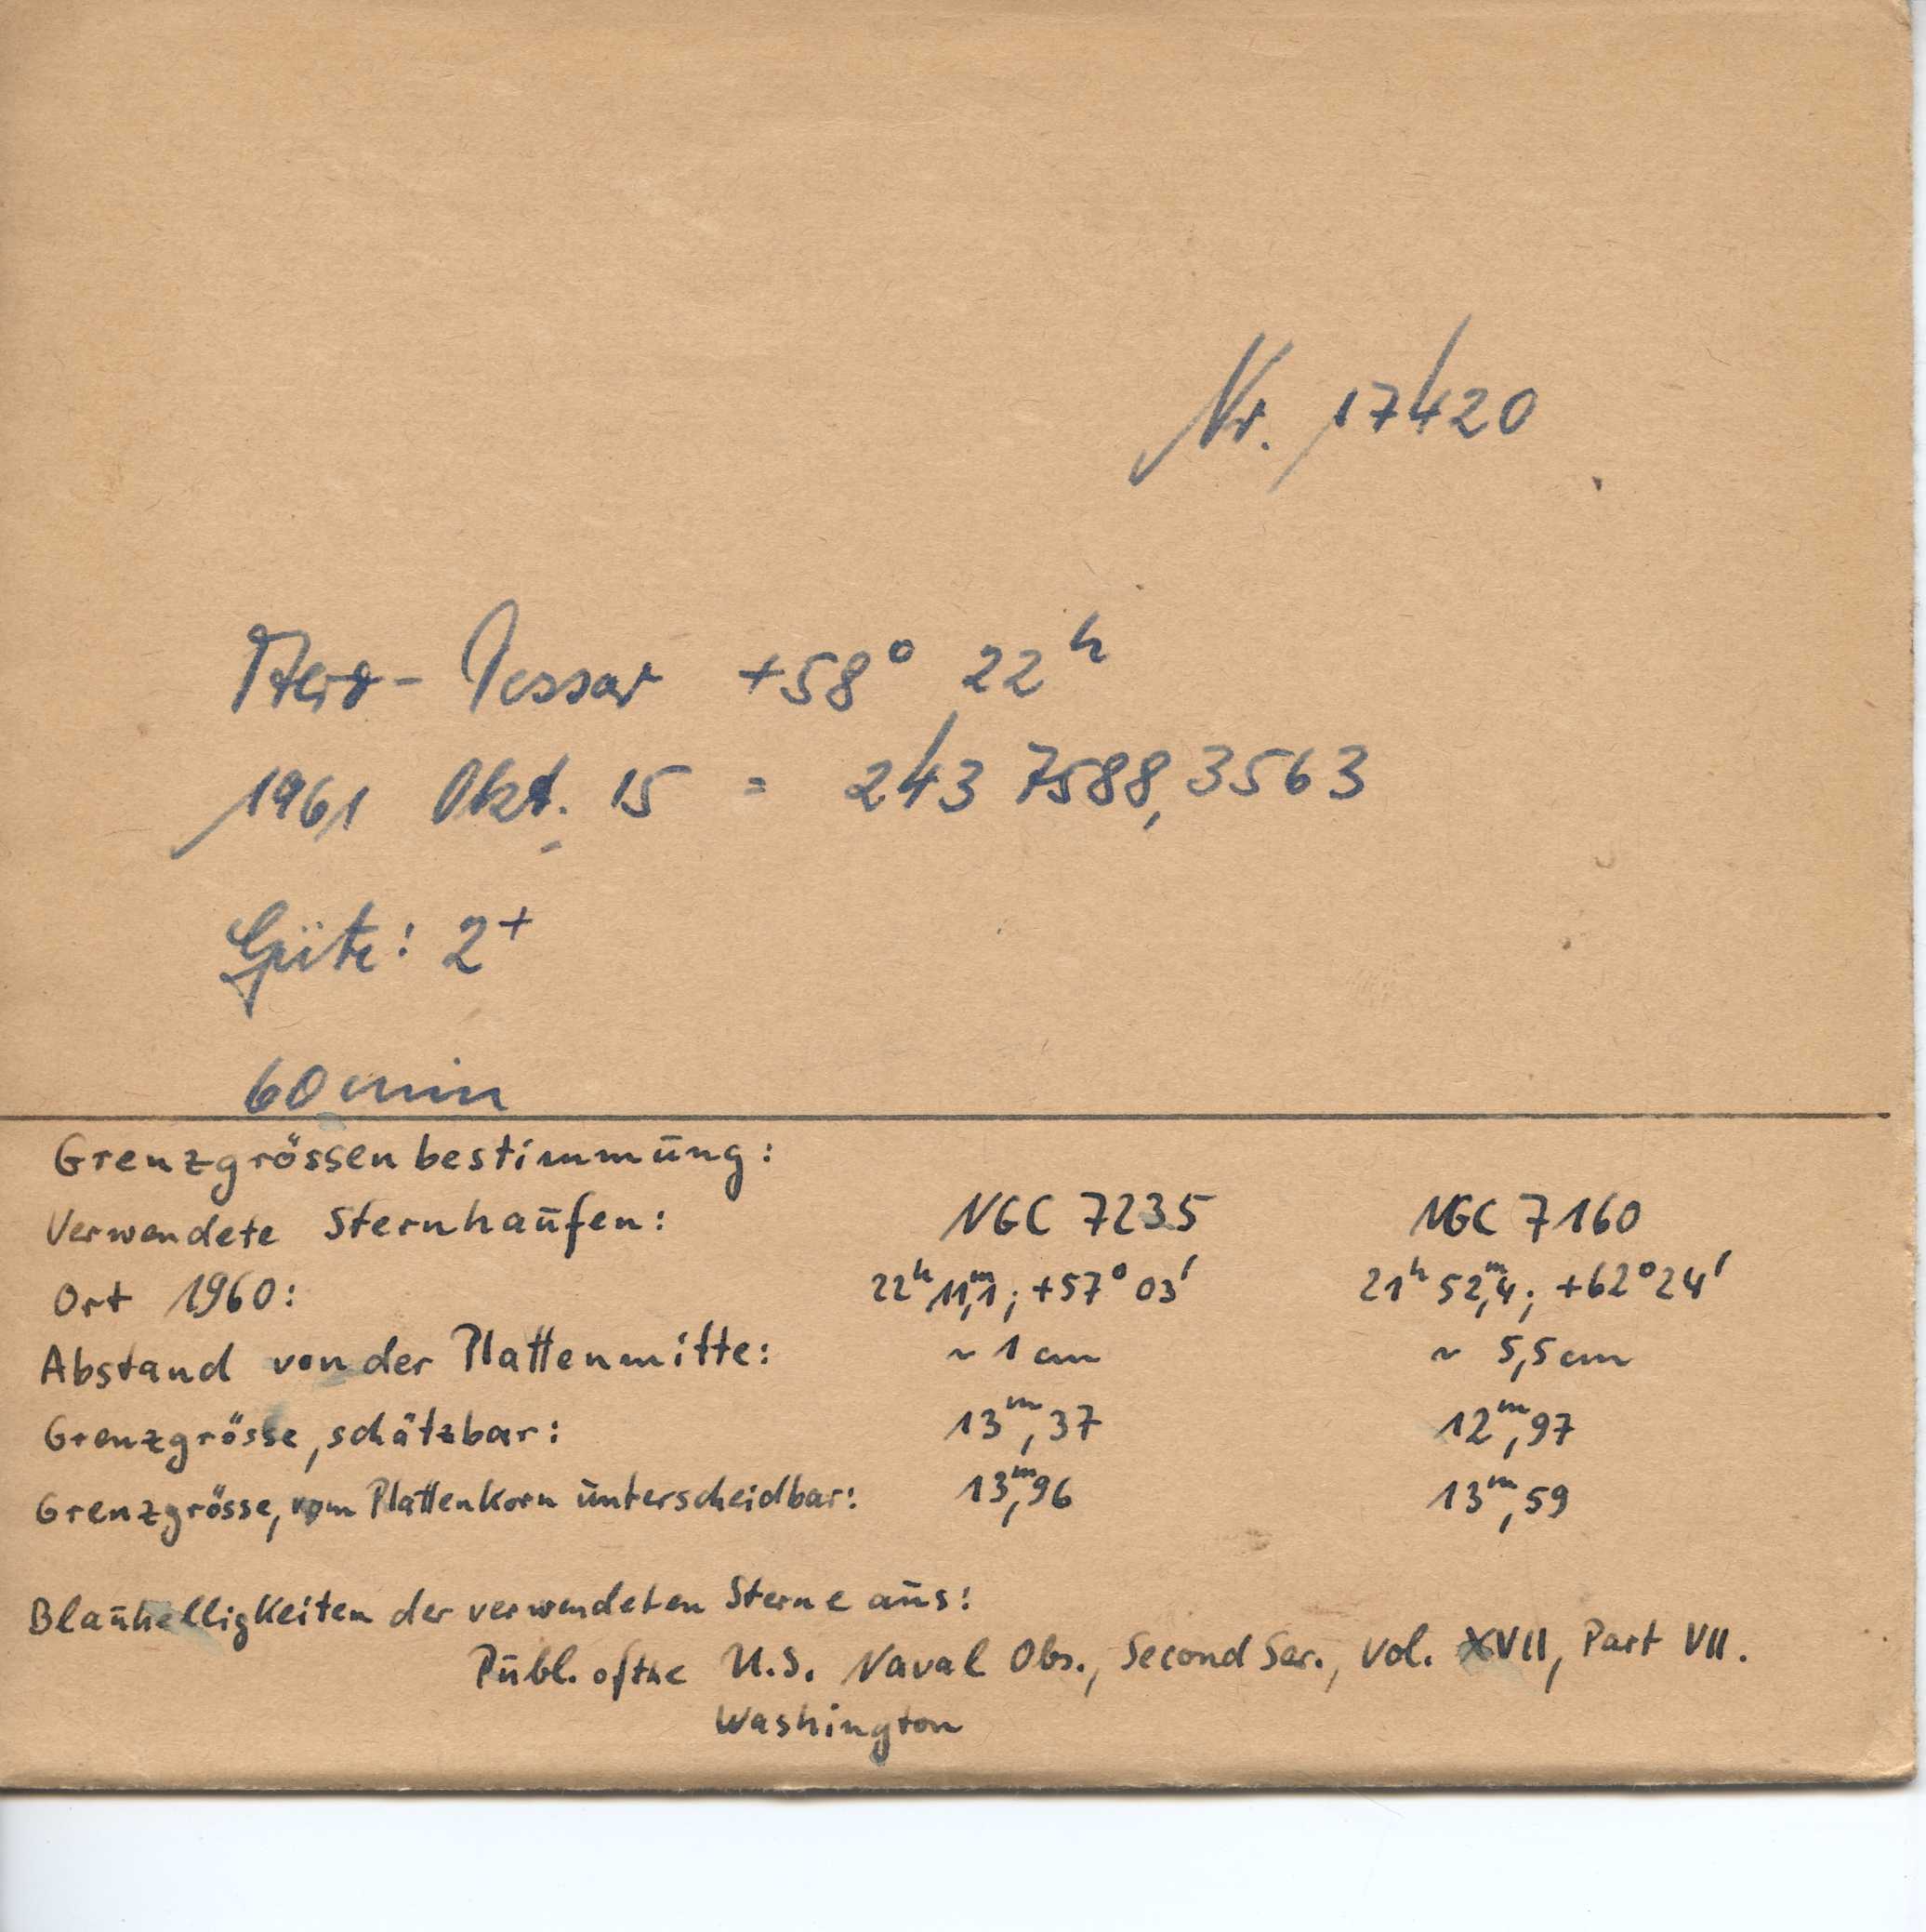 Nr. 17420
Tessar +58° 22ʰ
1961 Okt. 15 = 243 7588,3563
Güte: 2⁺
60 min
Grenzgrössenbestimmūng:
Verwendete Sternhaūfen: NGC 7235 NGC 7160
Ort 1960: 22ʰ 11ᵐ,1; +57° 03′ 21ʰ 52ᵐ,4; +62° 24′
Abstand von der Plattenmitte: ~ 1 cm ~ 5,5 cm
Grenzgrösse, schätzbar: 13ᵐ,37 12ᵐ,97
Grenzgrösse, vom Plattenkorn ūnterscheidbar: 13ᵐ,96 13ᵐ,59
Blaūhelligkeiten der verwendeten Sterne aūs:
Pūbl. of the U.S. Naval Obs., Second Ser., Vol. XVII, Part VII.
Washington